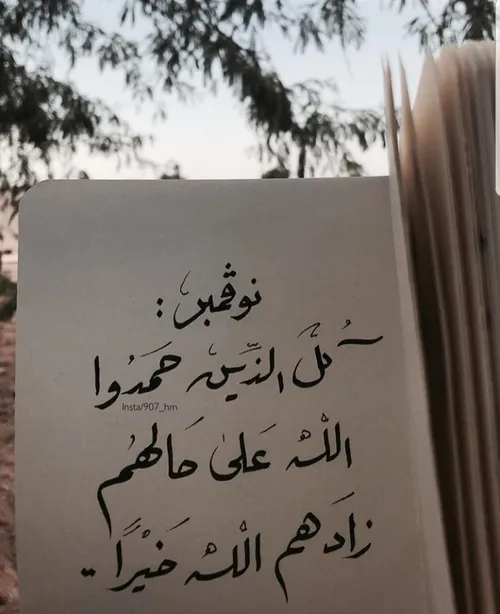 نوڤمبر :
كُلّ الذِّين حَمَدُوا
Insta/907_hm
اللّٰه عَلىٰ حَالهُم
زادَهم اللّٰه خَيْرًا ..